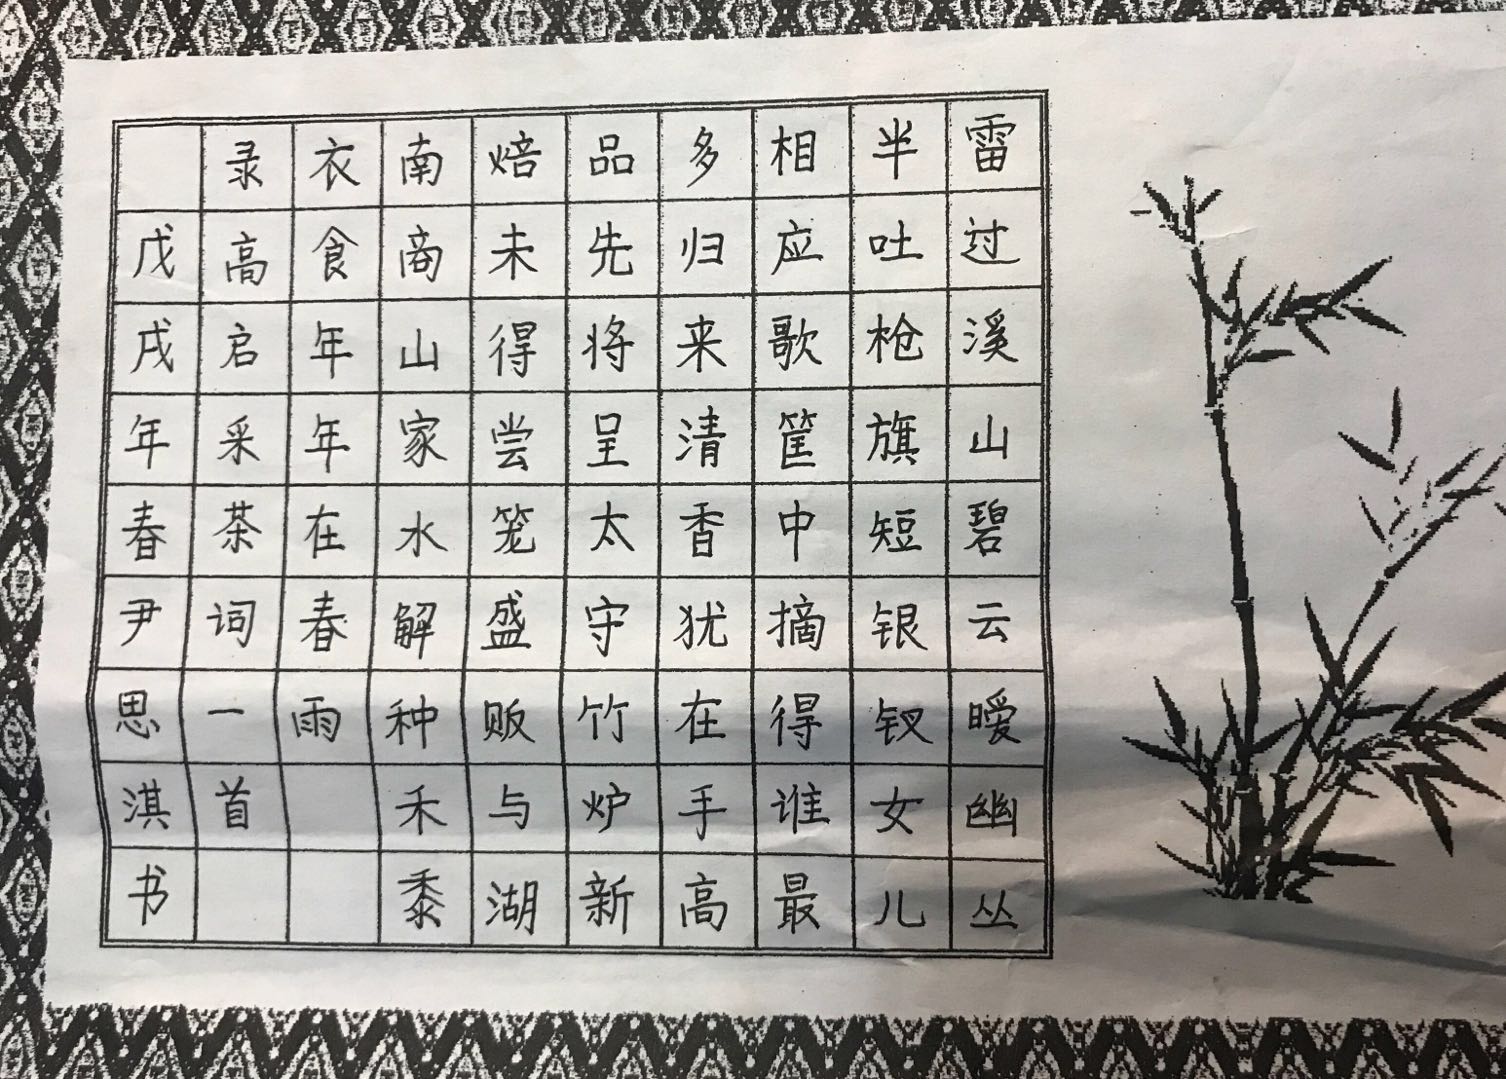 雷过溪山碧云暧幽丛
半吐枪旗短银钗女儿
相应歌筐中摘得谁最
多归来清香犹在手高
品先将呈太守竹炉新
焙未得尝笼盛贩与湖
南商山家水解种禾黍
衣食年年在春雨
录高启采茶词一首
戊戌年春尹思淇书